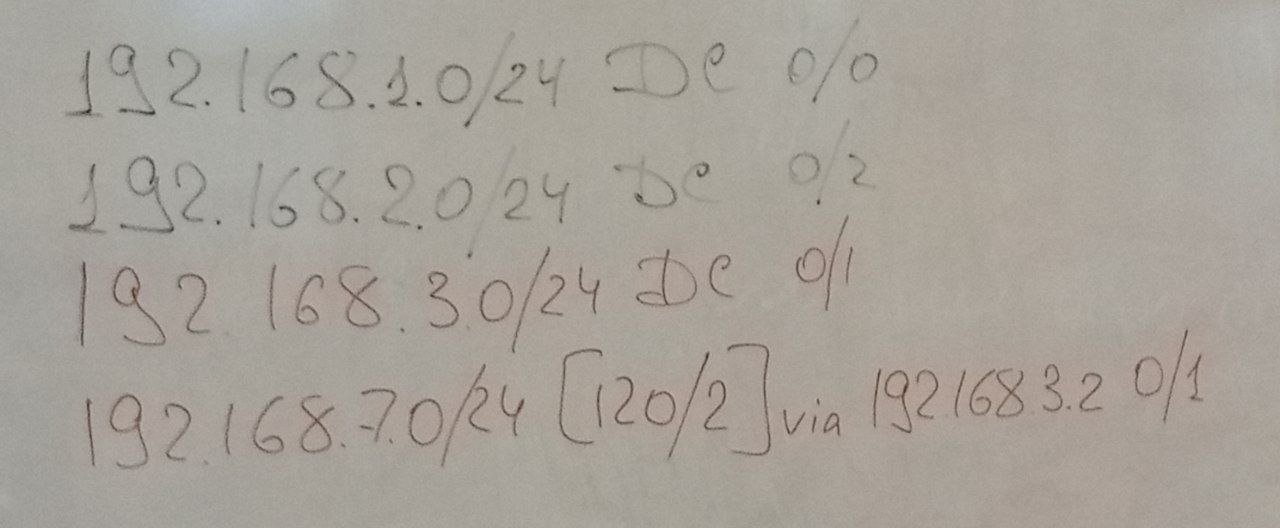 192.168.1.0/24 DC 0/0
192.168.2.0/24 DC 0/2
192.168.3.0/24 DC 0/1
192.168.7.0/24 [120/2] via 192 168 3.2 0/1